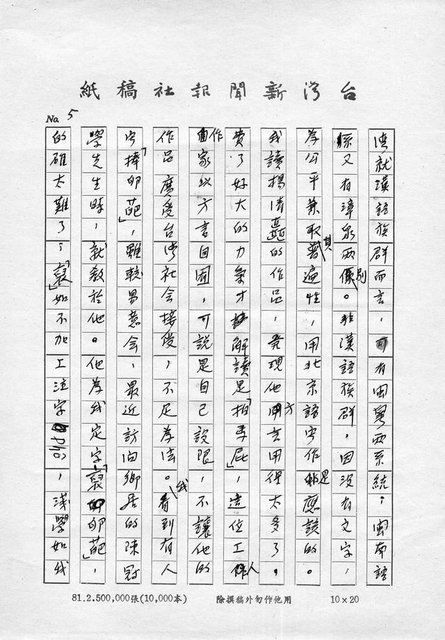 台灣新聞報社稿紙
No. 5
應就漢語族群而言，有閩粵兩系統，閩南語
系又有漳泉兩個別。非漢語族群，因沒有文字，
為公平兼取其普遍性，用北京語寫作是應該的。
我讀楊清矗的作品，發現他用方言用得太多了，
費了好大的力氣才解讀「拍手屁」，這位工人
作家以方言自囿，可說是自己設限，不讓他的
作品廣受台灣社會接受，不足為法。我看到有人
寫捧「卵葩」，雖較易意會，最近訪問鄉居的陳冠
學先生時，就教於他。他為我定字「𡳞」如「卵葩」，
的確太難了；「」如不加工注字，淺學如我
81.2.500,000張(10,000本)
除撰稿外勿作他用
10×20